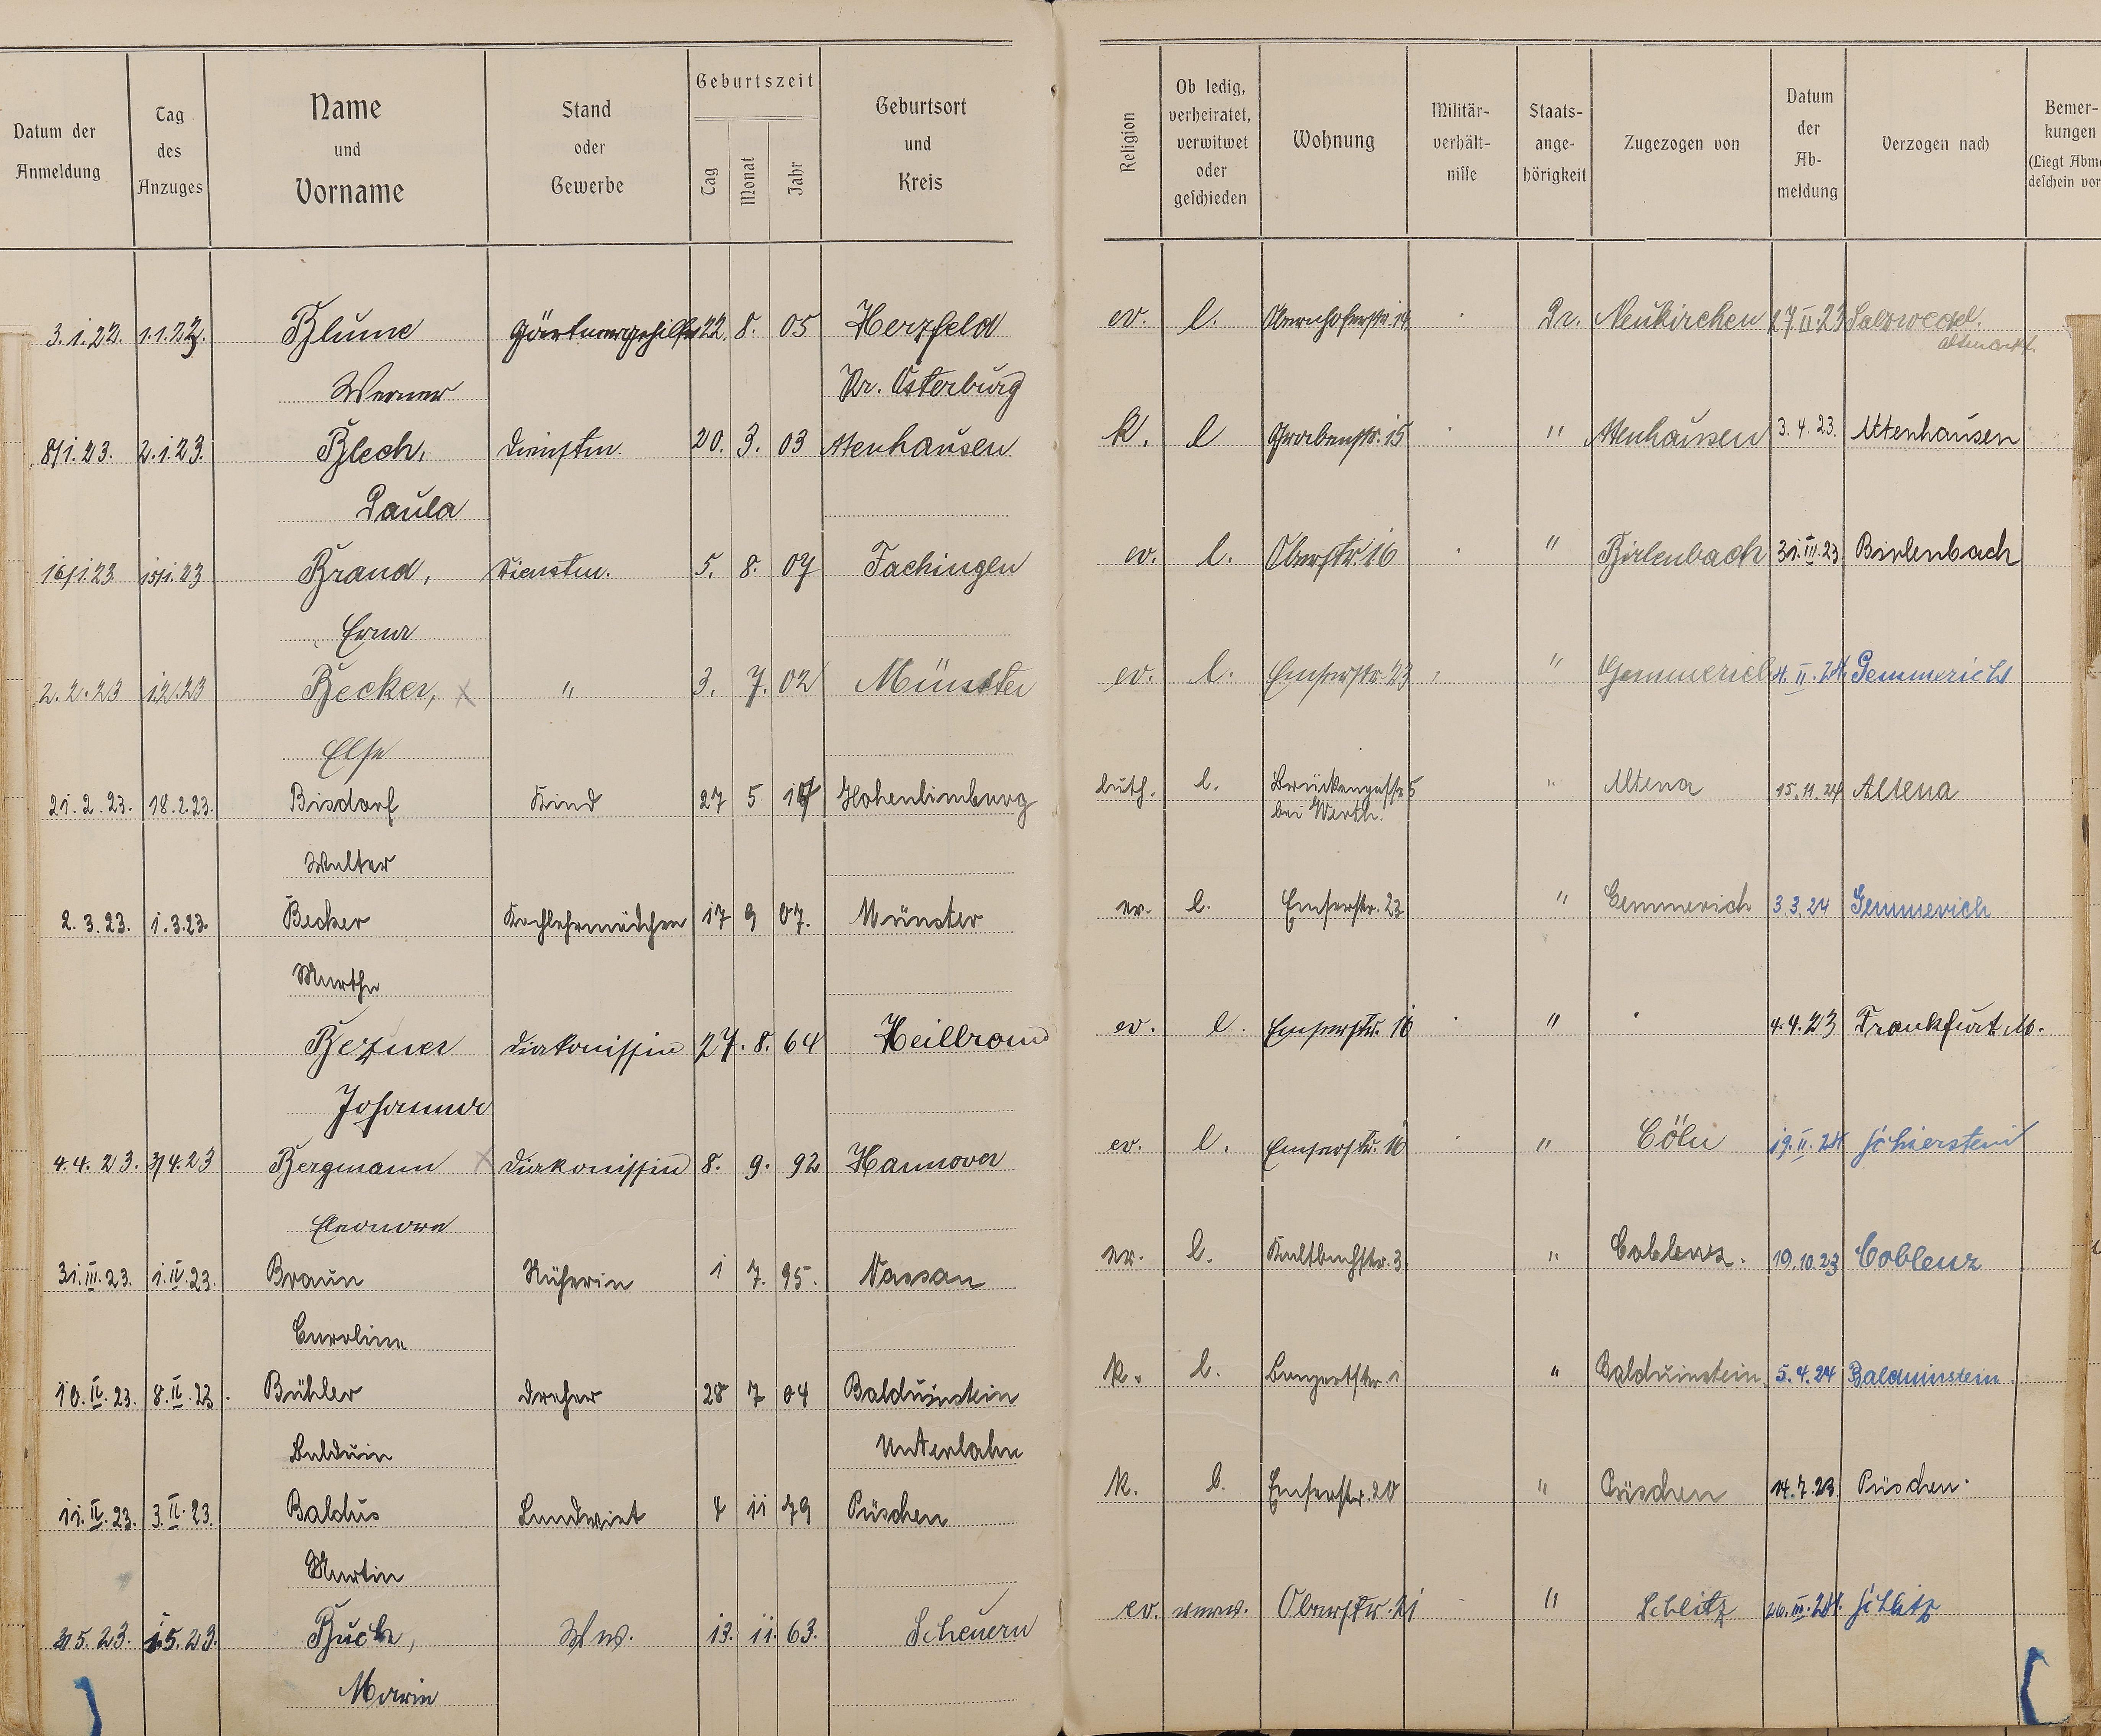 Datum der Anmeldung
Tag des Anzuges
Name und Vorname
Stand oder Gewerbe
Geburtszeit
Tag Monat Jahr
Geburtsort und Kreis
Religion
Ob ledig, verheiratet, verwitwet oder geschieden
Wohnung
Militär-verhält-nisse
Staats-ange-hörigkeit
Zugezogen von
Datum der Ab-meldung
Verzogen nach
Bemer-kungen
(Liegt Abm
deschein vor
3.1.22. 1.1.23. Blume Gärtnergehilfe 22. 8. 05 Herzfeld ev. l. Obernhoferstr. 14 Pr. Neukirchen 27.II.23 Salzwedel.
Altmarkt.
Werner Kr. Osterburg
8/1.23. 2.1.23. Blech, Dienstm. 20. 3. 03 Attenhausen k. l Grabenstr. 15 " Attenhausen 3.4.23. Attenhausen
Paula
16/1.23 15/1.23 Brand, Dienstm. 5. 8. 07 Fachingen ev. l. Oberstr. 16 " Birlenbach 31.III.23 Birlenbach
Erna
2.2.23 1.2.23 Becker, x " 3. 7. 02 Münster ev. l. Emserstr. 23 " Gemmerich 4.II.24. Gemmerich
Else
21.2.23. 18.2.23. Bisdorf Kind 27 5 Hohenlimburg luth. l. Brückengasse 5 " Altena 15.11.24 Altena
bei Werth.
Walter
2.3.23. 1.3.23. Becker Kochlehrmädchen 17 9 07. Münster ev. l. Emserstr. 23 " Gemmerich 3.3.24 Gemmerich
Martha
Bezner Diakonissin 27. 8. 64 Heilbronn ev. l. Emserstr. 16 " 4.4.23 Frankfurt M.
Johanna
4.4.23. 3/4.23 Bergmann x Diakonissin 8. 9. 92 Hannover ev. l. Emserstr. 16 " Cöln 19.II.24 Schierstein
Eleonore
31.III.23. 1.IV.23. Braun Näherin 1 7. 95. Nassau ev. l. Kaltbachstr. 3. " Coblenz. 19.10.23 Coblenz
Caroline
10.IV.23. 8.IV.23. Bühler Dreher 28 7 04 Balduinstein k. l. Bongertstr. 1 " Balduinstein 5.4.24 Balduinstein.
Balduin Unterlahn
11.IV.23. 3.IV.23. Baldus Landwirt 4 11 79 Püschen k. l. Emserstr. 20 " Püschen 14.7.23. Püschen.
Martin
5.23. 1.5.23. Buch, Ww. 13. 11. 63. Scheuern ev. verw. Oberstr. 21 " Schlitz 26.III.24. Schlitz
Marie